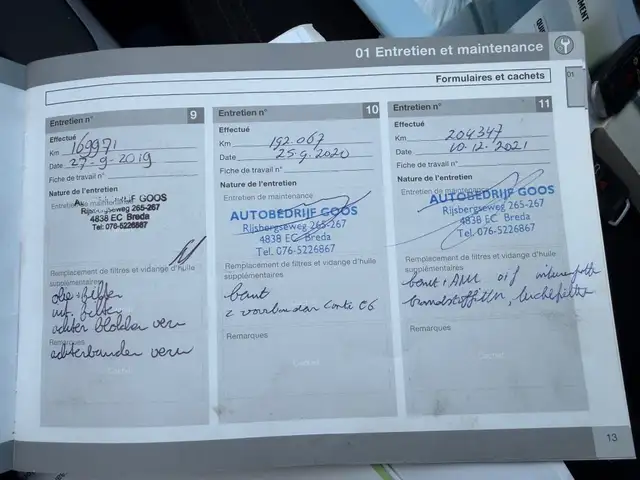 01 Entretien et maintenance
Formulaires et cachets
01
Entretien n° 9
Effectué
Km 169971
Date 27-9-2019
Fiche de travail n°
Nature de l'entretien
Entretien de maintenance
GOOS
Rijsbergseweg 265-267
4838 EC Breda
Tel. 076-5226867
Remplacement de filtres et vidange d'huile
supplémentaires
olie + filter
int. filter
achter blokken verv
Remarques
achterbanden verv
Cachet
Entretien n° 10
Effectué
Km 192.067
Date 25.9.2020
Fiche de travail n°
Nature de l'entretien
Entretien de maintenance
AUTOBEDRIJF GOOS
Rijsbergseweg 265-267
4838 EC Breda
Tel. 076-5226867
Remplacement de filtres et vidange d'huile
supplémentaires
beurt
2 voorbanden Conti
Remarques
Cachet
Entretien n° 11
Effectué
Km 204347
Date 10.12.2021
Fiche de travail n°
Nature de l'entretien
Entretien de maintenance
AUTOBEDRIJF GOOS
Rijsbergseweg 265-267
4838 EC Breda
Tel. 076-5226867
Remplacement de filtres et vidange d'huile
supplémentaires
beurt
brandstoffilter, luchtfilter
Remarques
Cachet
13